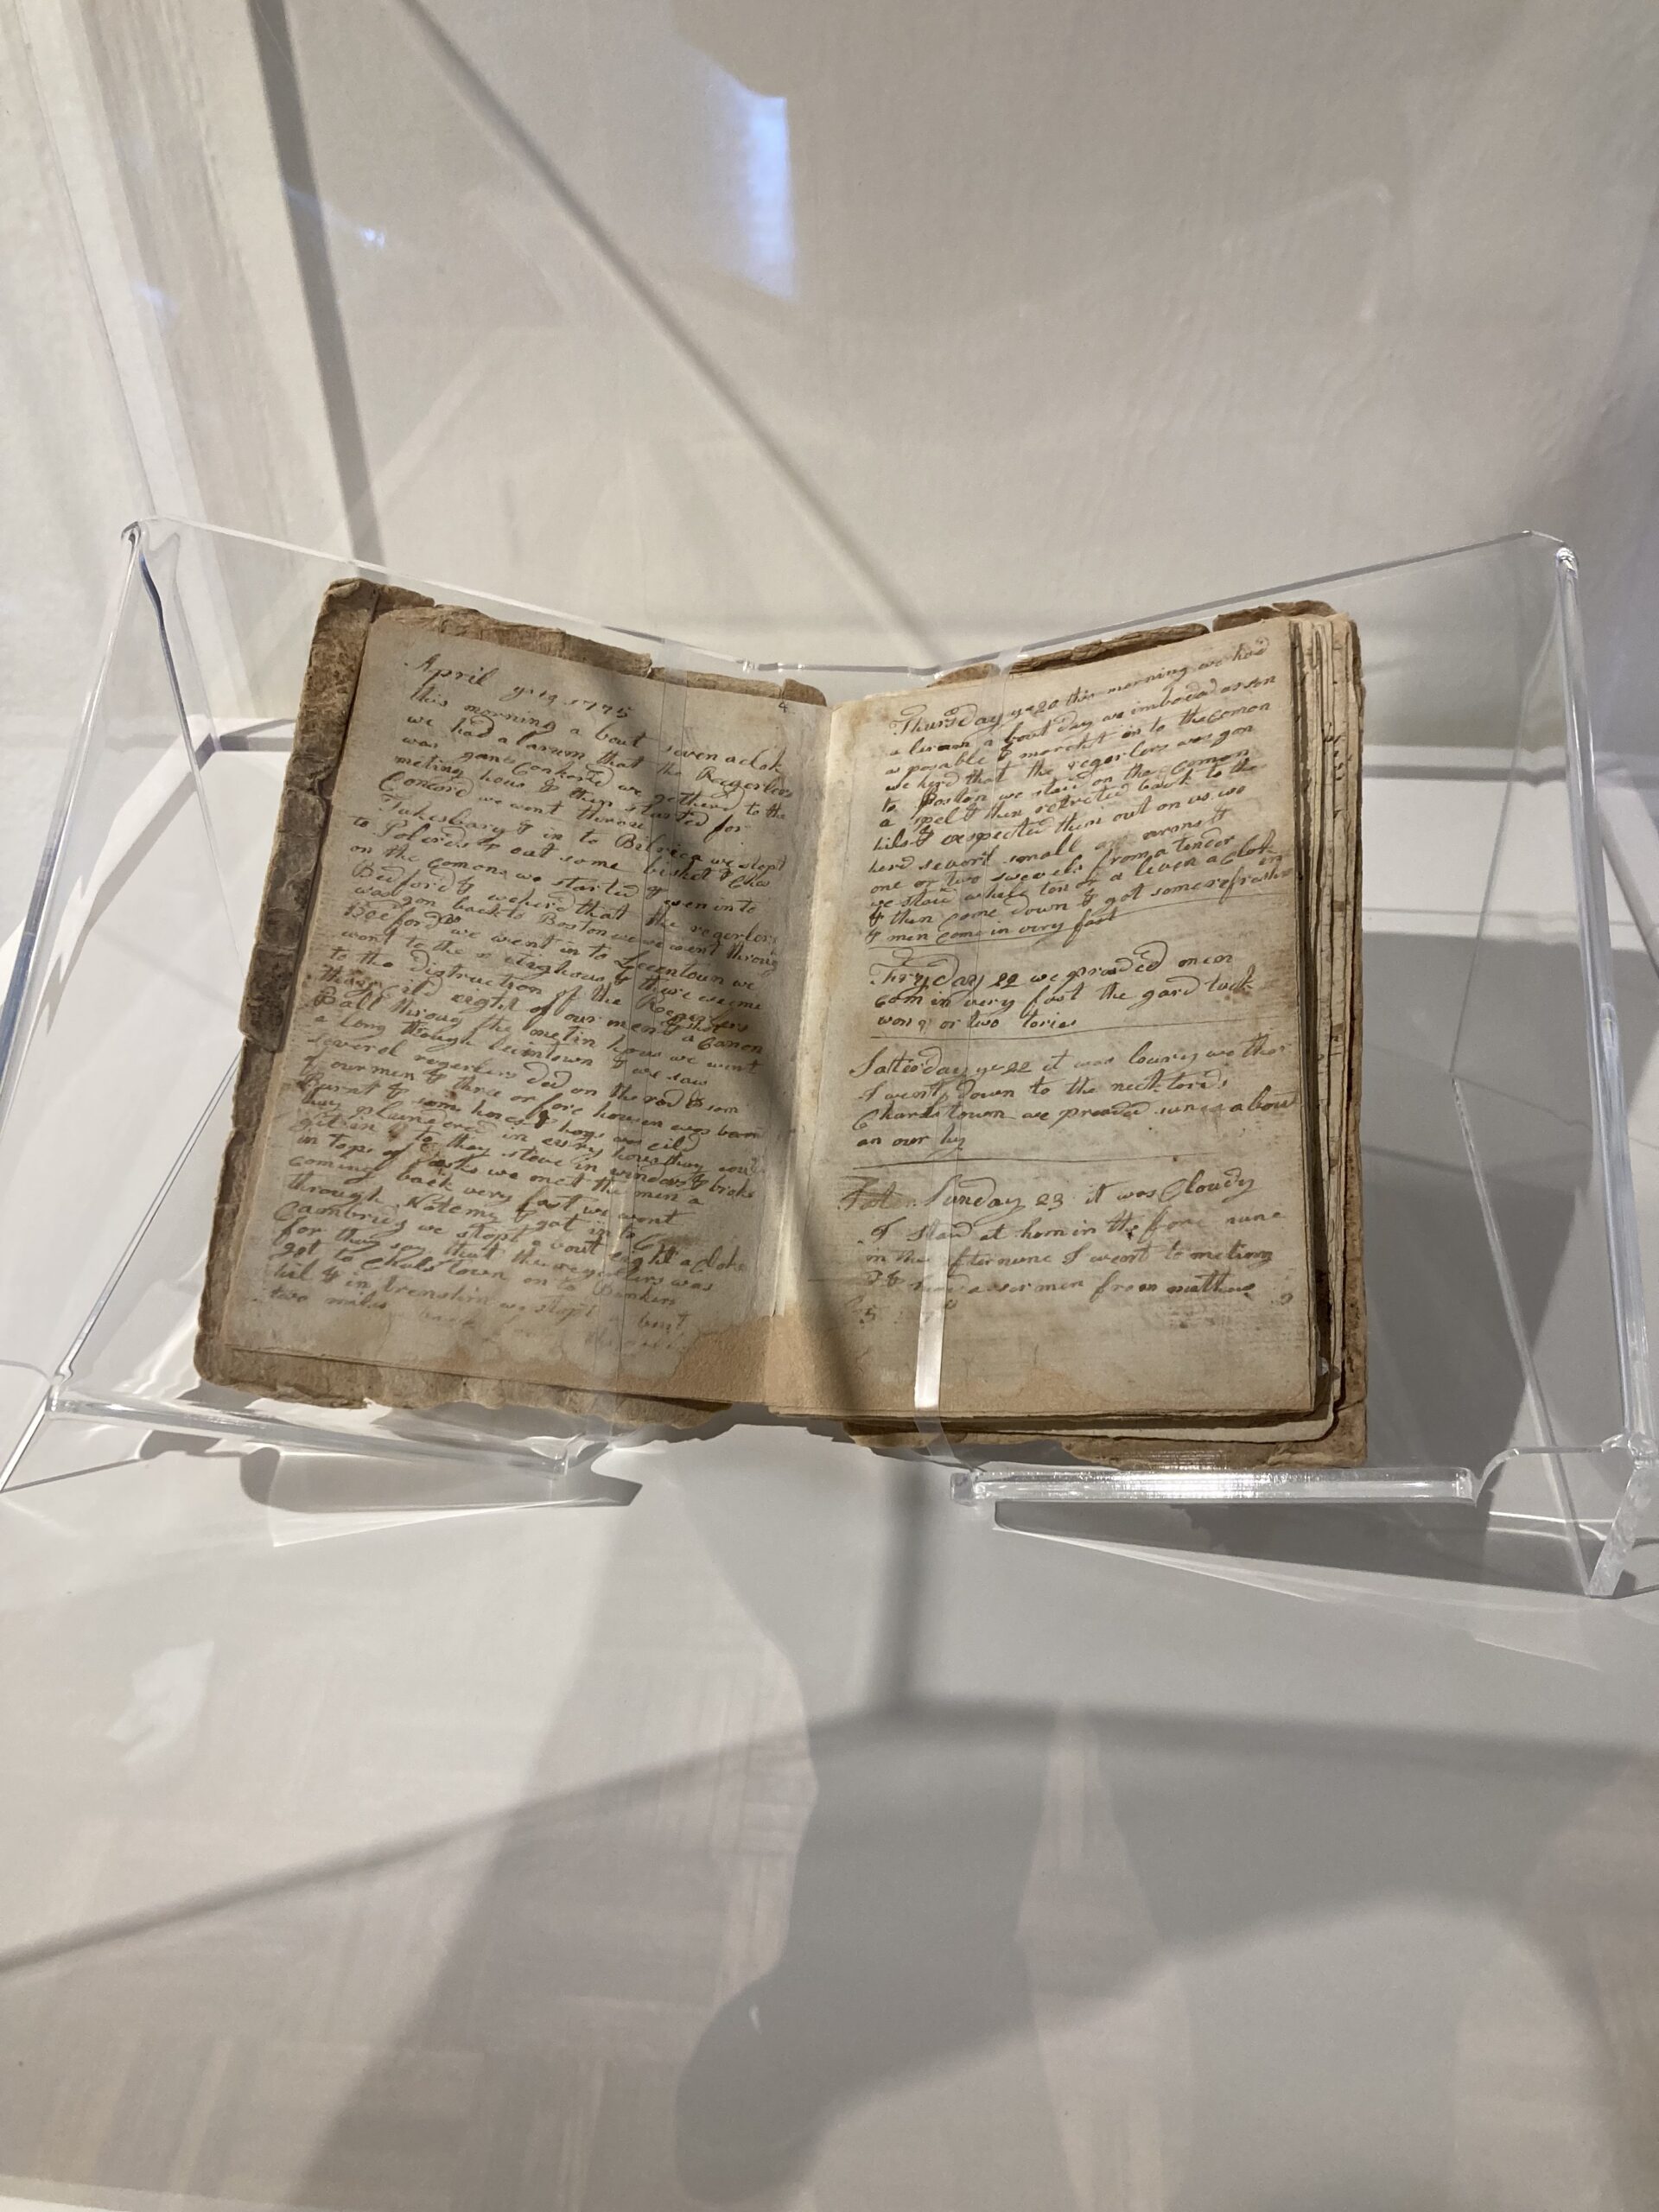 April ye 19 1775
4
this morning a bout seven aclok
we had alarum that the Reegerlers
was gon to Conkord we gethered to the
meting hous & then started for
Concord we went throu
Tukesbary & in to Bilrica we stopt
to Polords & eat some bisket & Ches
on the comon. we started & wen in to
Bedford & we herd that the regerlers
was gon back to Boston we went throug
Bedford we went in to Lecentown we
went to the metinghous & there we
to the distruction of the Regerlers
thay cild eight of our men & shot a Canon
Ball throug the metin hous we went
a long through Lecintown & we saw
several regerlers ded on the rod & som
of our men & three or fore housen was
Burnt & som hoses & hogs was cild
thay plundered in every hous thay could
git in to thay stove in windows & broke
in tops of desks we met the men a
coming back very fast we went
through Notemy & got in to
Cambridg we stopt a bout eight aclock
for thay say that the regerlers was
got to Chalstown on to Bunkers
hil & in trenshin we stopt a bout
two miles back
Thursday ye 20 this morning we had
alarum a bout day we imbodid as son
as posable & marcht in to the Comon
we herd that the regerlers was gon
to Boston we staid on the Comon
a spel & then retreted back to the
hils & expected them out on us we
herd severl small arams &
one or two swevels from a tender
we staid while ten or a leven aclok
& then come down & got some refreshm
& men come in very fast
Fryday 22 we preaded men
com in very fast the gard tuck
won or two tories
Satterday ye 22 it was lowry
I went down to the neck tords
Charls town we preaded sun a bout
an our hy
Sunday 23 it was Cloudy
I staid at hom in the fore nune
in the afternune I went to meting
& herd a sarmen from mathew
5